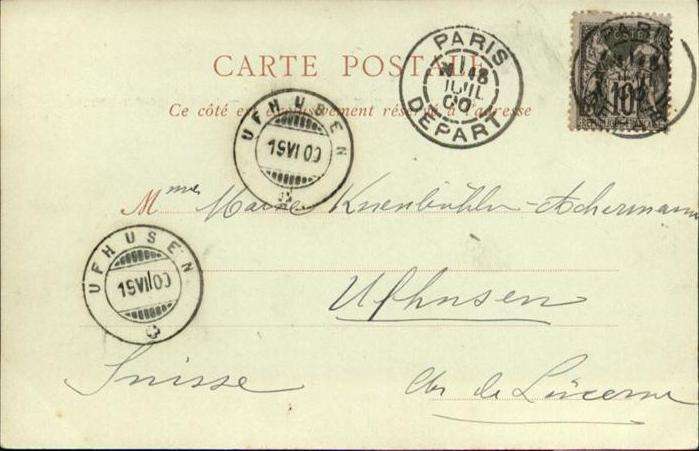 CARTE POSTALE
Ce côté est exclusivement réservé à l'adresse
PARIS
18
JUIL
00
DEPART
PARIS
10
UFHUSEN
19 VII 00
UFHUSEN
19 VII 00
Mmes Marie Knenbühler-Achermann
Ufhusen
Suisse Ctn de Lucerne